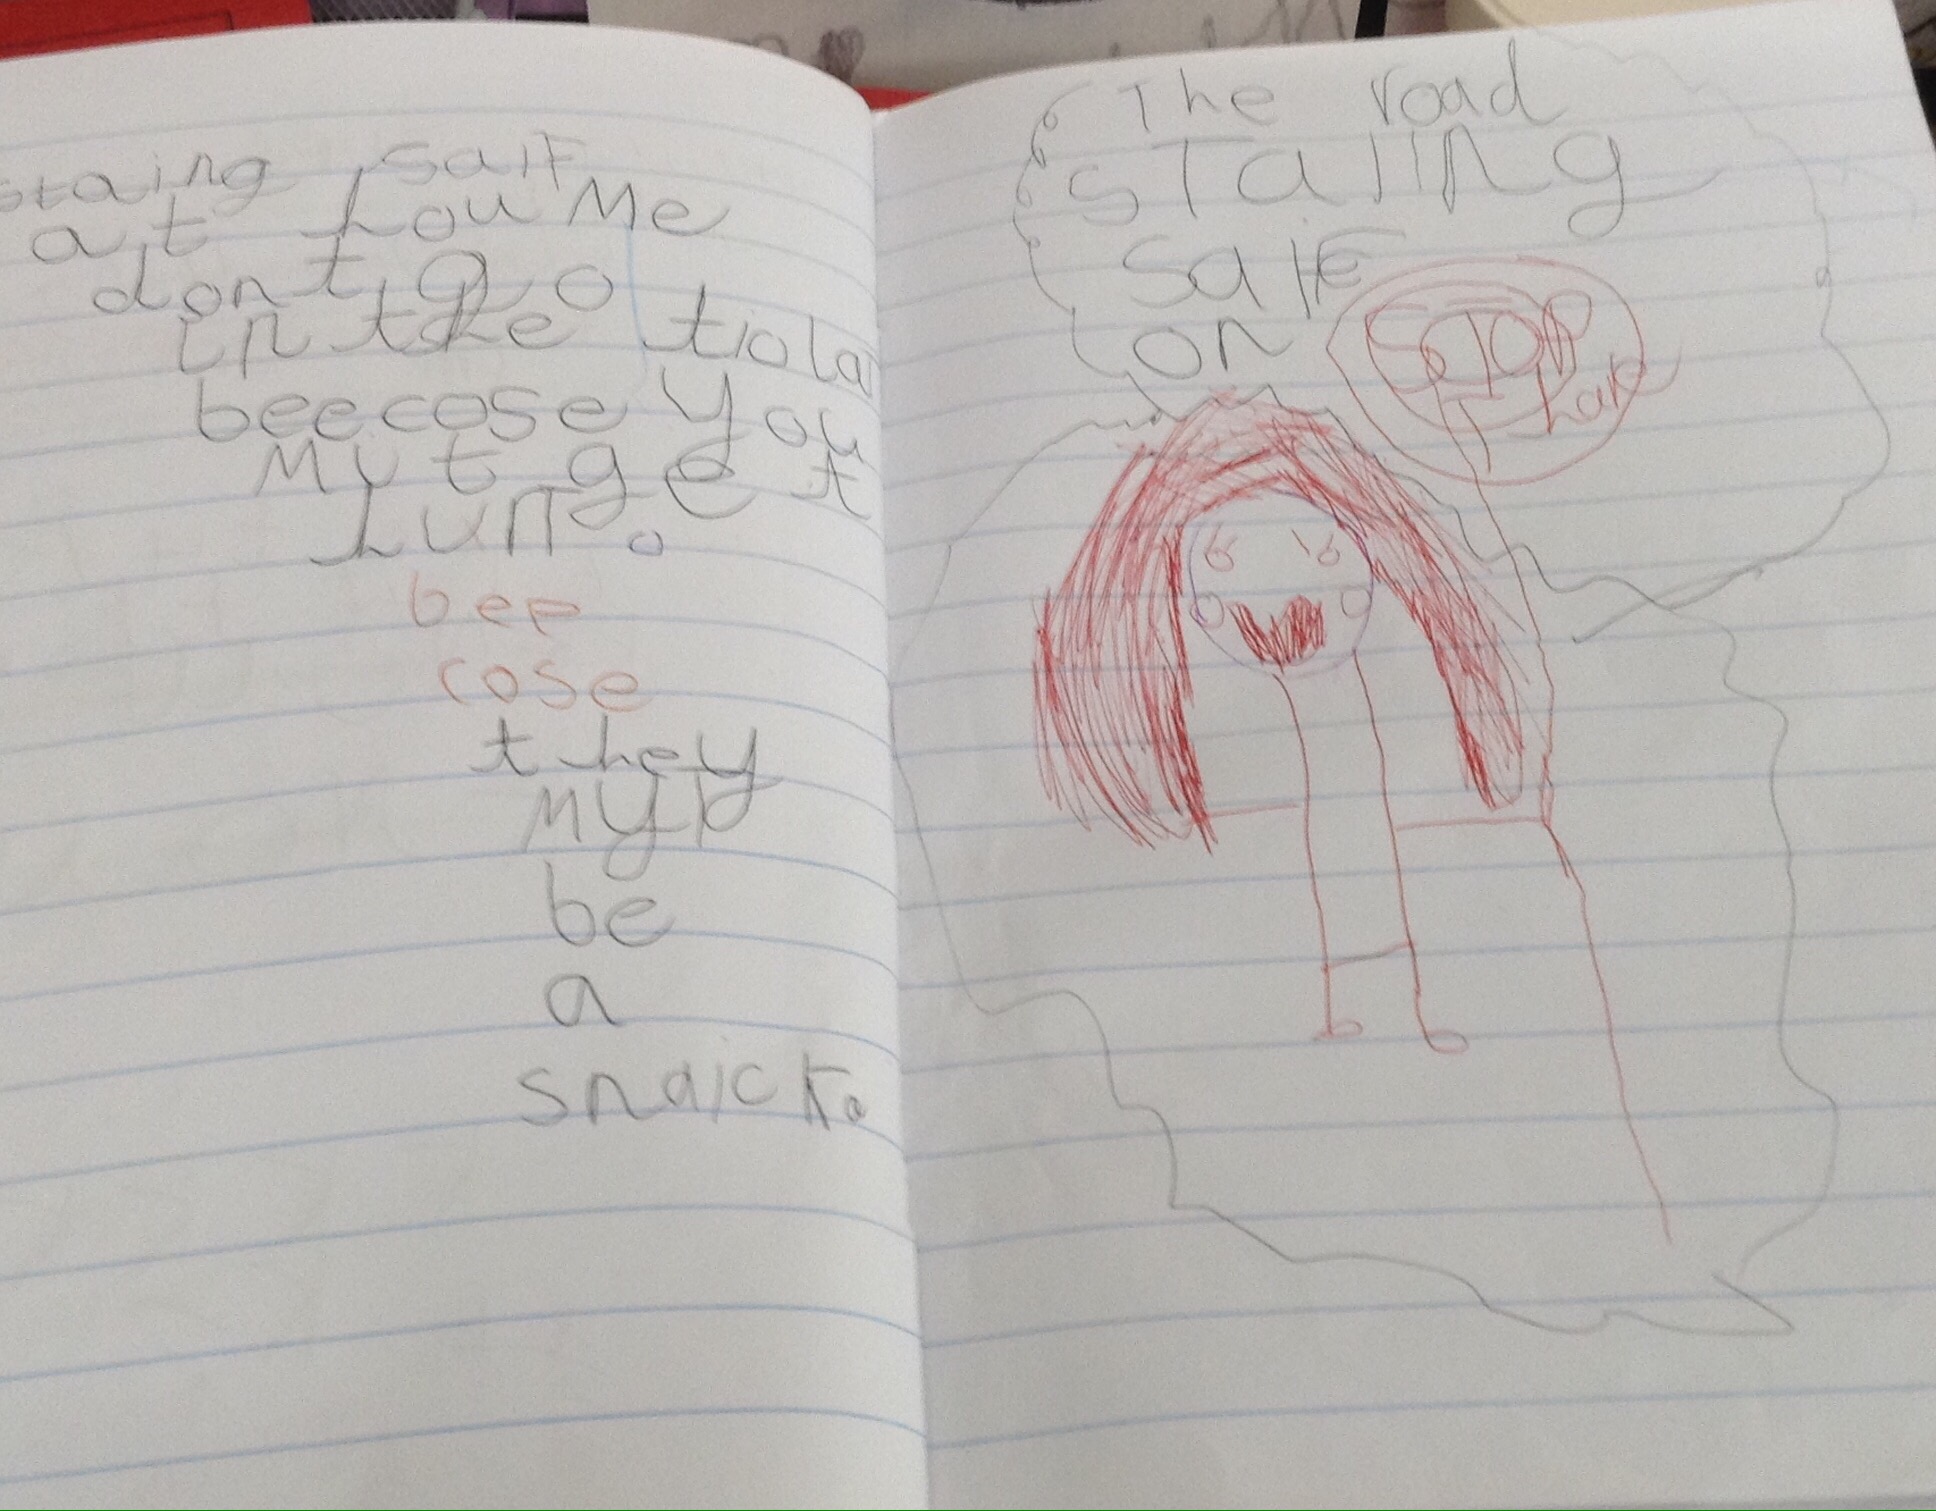 staing saif
at houme
dont go
in the tiola
beecose you
myt get
hurt.
bee
cose
they
myt
be
a
snaick.
The road
staiing
saife
on
STOP